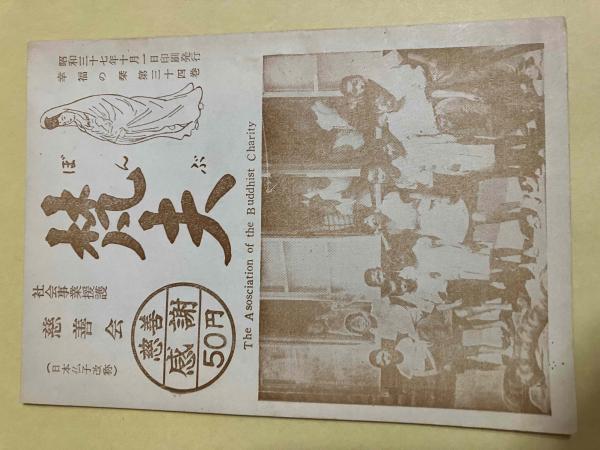 昭和三十七年十月一日印刷発行
幸福の栞 第三十四巻
ぼんぶ
梵夫
社会事業援護
慈善会
(日本仏子改称)
慈善
感謝
50円
The Asosciation of the Buddhist Charity